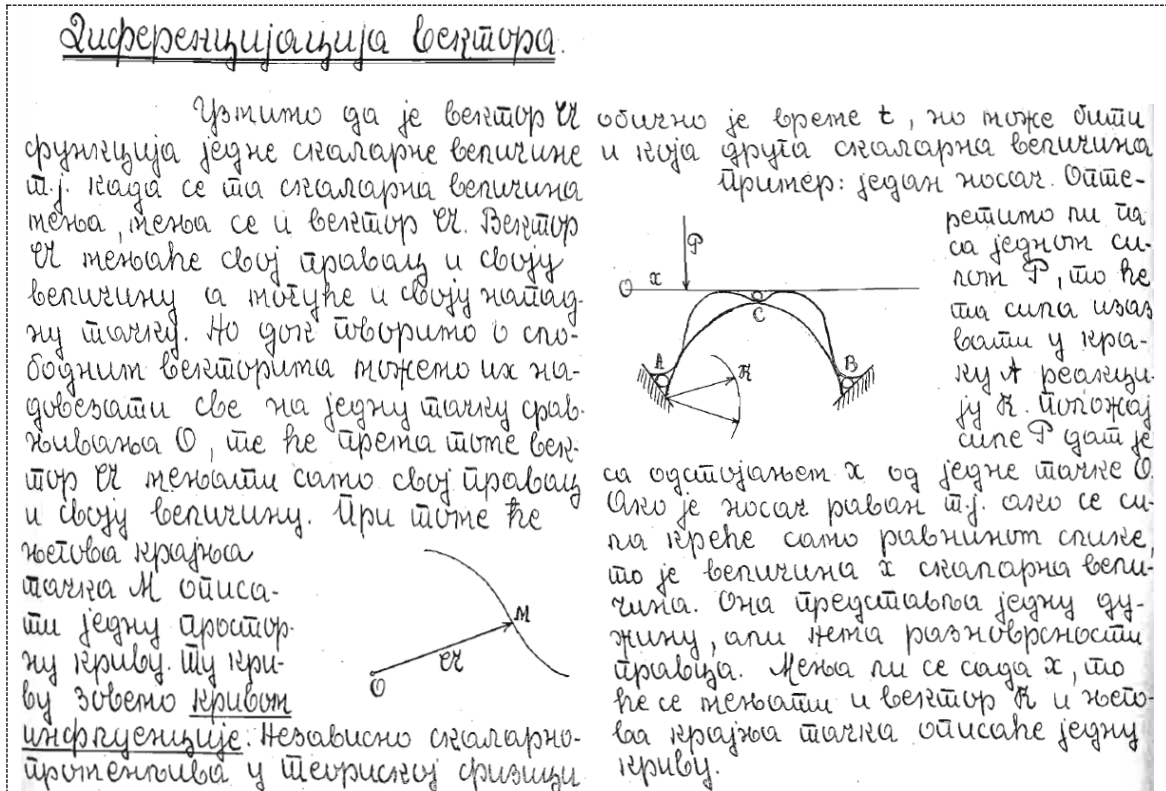 Диференцијација вектора.
Узмимо да је вектор 𝔄
функција једне скаларне величине
т.ј. када се та скаларна величина
мења, мења се и вектор 𝔄. Вектор
𝔄 мењаће свој правац и своју
величину а могуће и своју напад-
ну тачку. Но док говоримо о сло-
бодним векторима можемо их на-
довезати све на једну тачку срав-
њивања O, те ће према томе век-
тор 𝔄 мењати само свој правац
и своју величину. При томе ће
његова крајња
тачка M описа-
ти једну простор-
ну криву. Ту кри-
ву зовемо кривом
инфлуенције. Независно скаларно-
променљива у теориској физици
M
𝔄
O
обично је време t, но може бити
и која друга скаларна величина
Пример: један носач. Опте-
ретимо ли га
са једном си-
лом P, то ће
та сила изаз
вати у кра-
ку A реакци-
ју ℜ. Положај
силе P дат је
P
O x
C
A
B
ℜ
са одстојањем x од једне тачке O.
Ако је носач раван т.ј. ако се си-
ла креће само равнином слике,
то је величина x скаларна вели-
чина. Она представља једну ду-
жину, али нема разноврсности
правца. Мења ли се сада x, то
ће се мењати и вектор ℜ и њего-
ва крајња тачка описаће једну
криву.